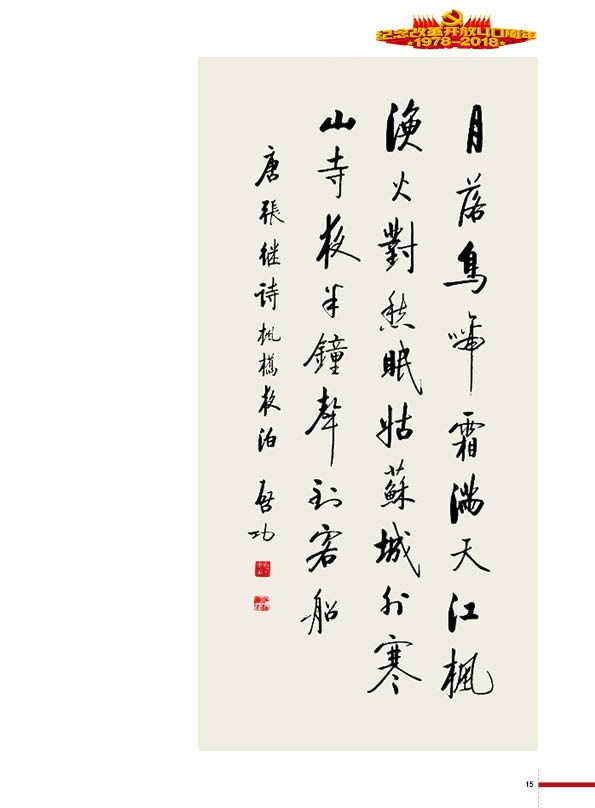 纪念改革开放40周年
1978-2018
月落烏啼霜滿天江楓
漁火對愁眠姑蘇城外寒
山寺夜半鐘聲到客船
唐張继诗楓橋夜泊 啓功
15